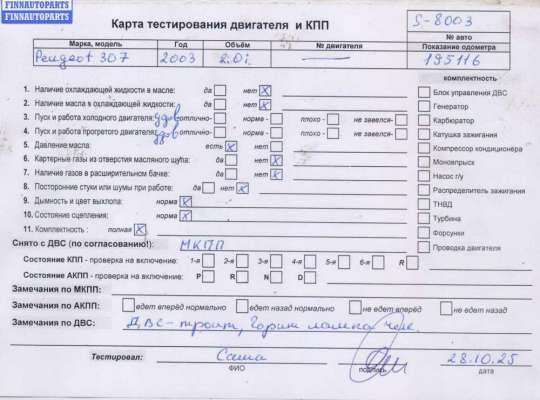 FINNAUTOPARTS
FINNAUTOPARTS
FINNAUTOPARTS
Карта тестирования двигателя и КПП
S-8003
№ авто
Марка, модель Год Объём № двигателя Показание одометра
Peugeot 307 2003 2.0i — 195116
комплектность
1. Наличие охлаждающей жидкости в масле: да нет X
Блок управления ДВС
2. Наличие масла в охлаждающей жидкости: да нет X
Генератор
3. Пуск и работа холодного двигателя: удов отлично- норма - плохо - не завелся-
Карбюратор
4. Пуск и работа прогретого двигателя: удов отлично- норма - плохо - не завелся-
Катушка зажигания
5. Давление масла: есть X нет
Компрессор кондиционера
6. Картерные газы из отверстия масляного щупа: да нет X
Моновпрыск
7. Наличие газов в расширительном бачке: да нет X
Насос г/у
8. Посторонние стуки или шумы при работе: да нет X
Распределитель зажигания
9. Дымность и цвет выхлопа: норма X
ТНВД
10. Состояние сцепления: норма X
Турбина
11. Комплектность : полная X
Форсунки
Снято с ДВС (по согласованию!): МКПП
Проводка двигателя
Состояние КПП - проверка на включение: 1-я 2-я 3-я 4-я 5-я 6-я R
Состояние АКПП - проверка на включение: P R N D
Замечания по МКПП:
Замечания по АКПП: едет вперёд нормально едет назад нормально не едет вперёд не едет назад
Замечания по ДВС: ДВС - троит, Горит лампа Чек.
Тестировал: Саша 28.10.25
ФИО подпись дата